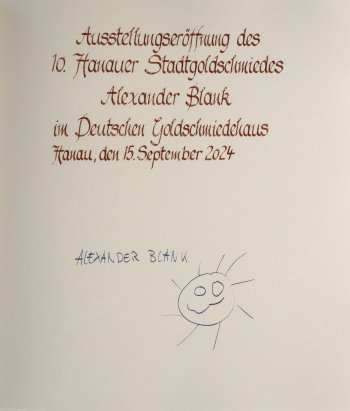 Ausstellungseröffnung des
10. Hanauer Stadtgoldschmiedes
Alexander Blank
im Deutschen Goldschmiedehaus
Hanau, den 15. September 2024
ALEXANDER BLANK